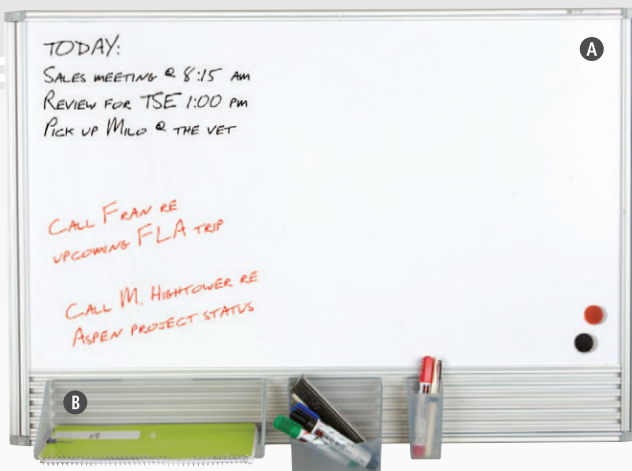 TODAY:
SALES MEETING @ 8:15 AM
REVIEW FOR TSE 1:00 PM
PICK UP MILO @ THE VET
CALL FRAN RE
UPCOMING FLA TRIP
CALL M. HIGHTOWER RE
ASPEN PROJECT STATUS
A
B